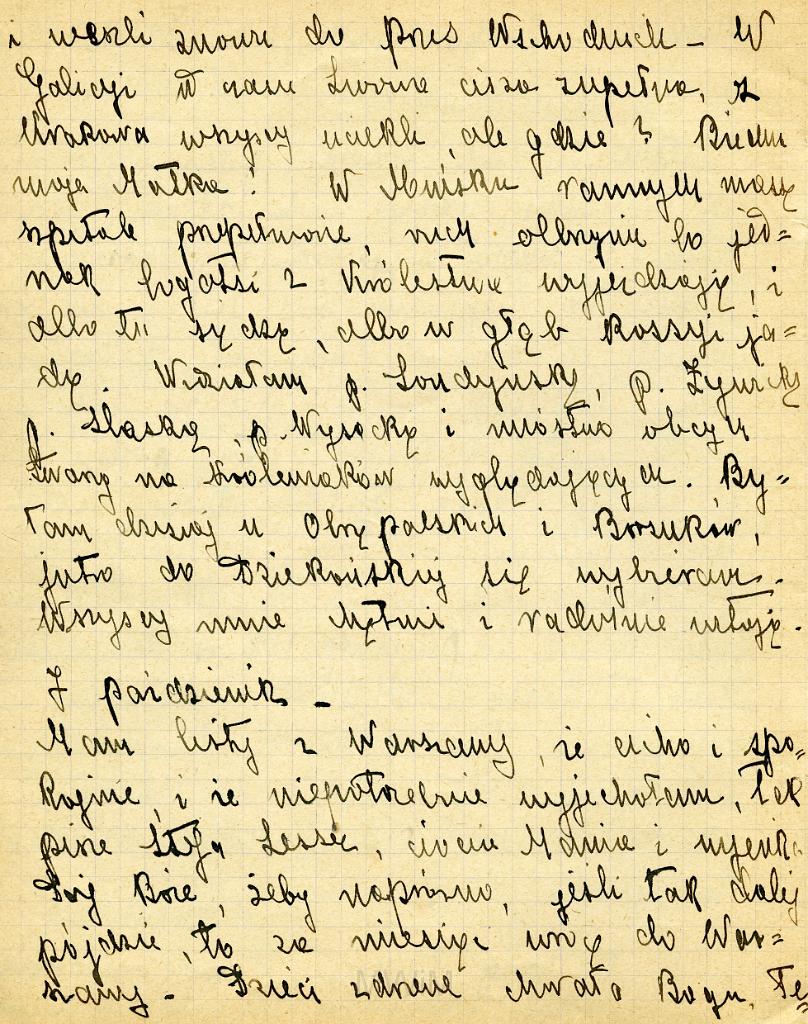 i weszli znowu do Prus Wschodnich – W
Galicyi w czasu Lwowa cisza zupełna, z
Krakowa wszyscy uciekli, ale gdzie? Biedna
moja Matka! W Mińsku rannych masę
szpitale przepełnione, ruch olbrzymi bo jed=
nak bogatsi z Królestwa wyjeżdżają, i
albo tu siedzą, albo w głąb Rossyi ja=
dą. Widziałam p. Londyńską, p. Żywicką
p. Śląską, p. Wysocką i mnóstwo obcych
twarzy na Króleniaków wyglądających. By=
łam dzisiaj u Obrąpalskich i Borsuków,
jutro do Dziekońskiej się wybieram.
Wszyscy mnie chętnie i radośnie witają.
7 październik –
Mam listy z Warszawy, że cicho i spo=
kojnie, i że niepotrzebnie wyjechałam, tak
pisze Stefa Lesser, ciocia Mania i
Daj Boże, żeby napróżno, jeśli tak dalej
pójdzie, to za miesiąc wrócę do War=
szawy – Dzieci zdrowe chwała Bogu. Te=